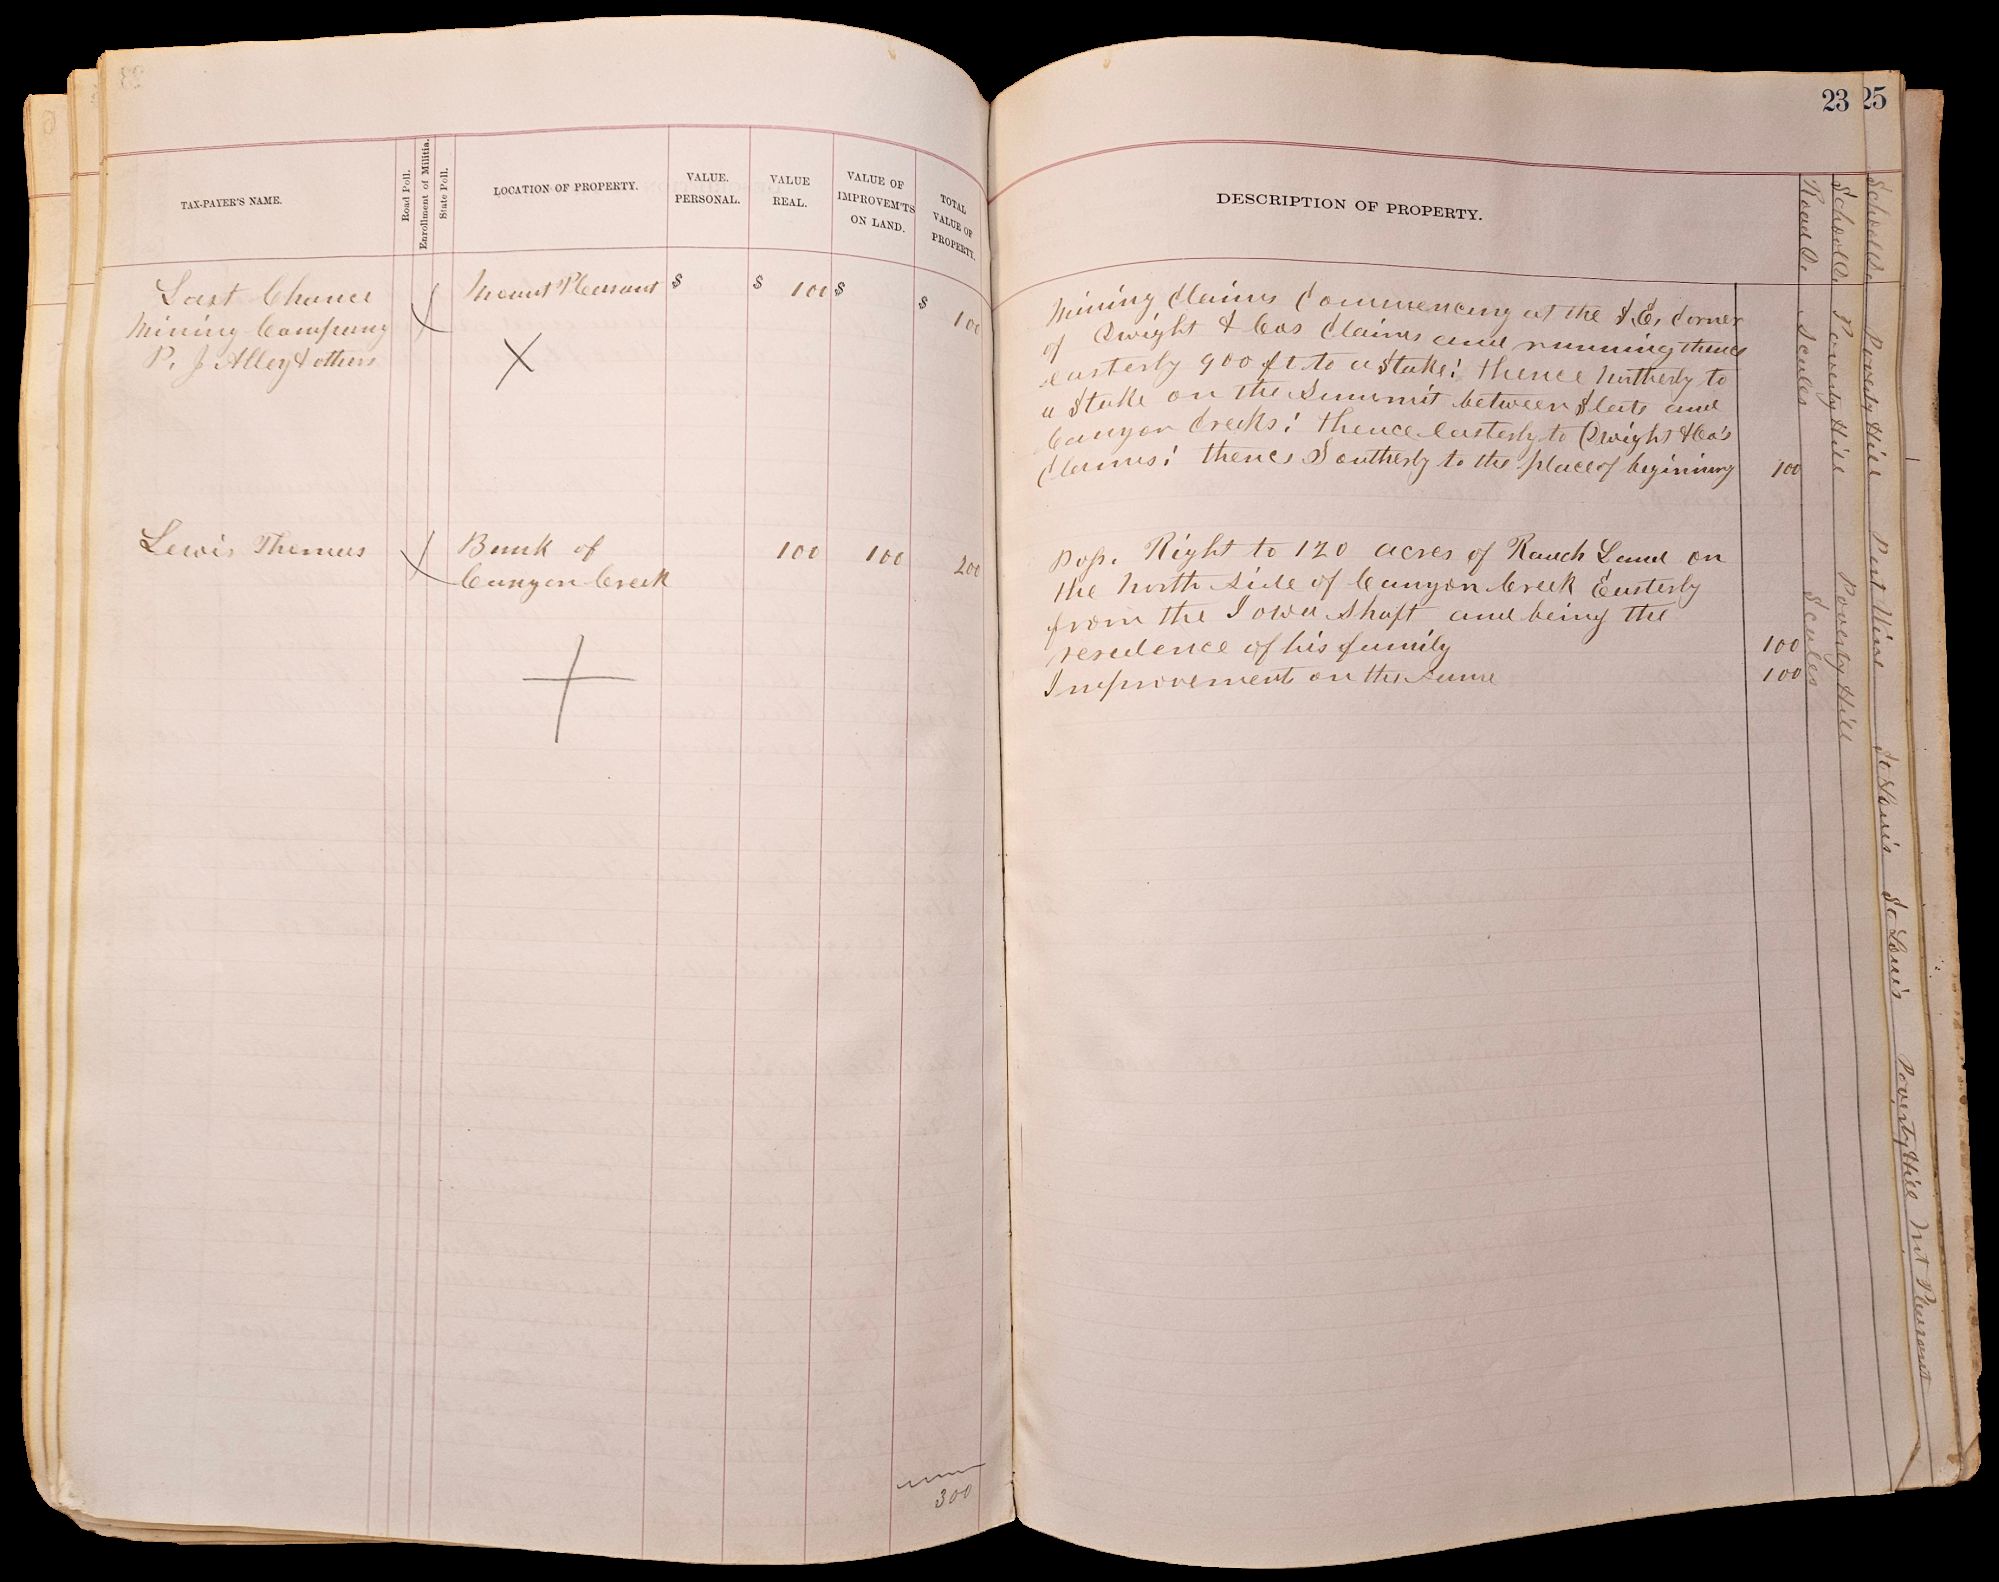 TAX-PAYER'S NAME.
Road Poll.
Enrollment of Militia.
State Poll.
LOCATION OF PROPERTY.
VALUE. PERSONAL.
VALUE REAL.
VALUE OF IMPROVEM'TS ON LAND.
TOTAL VALUE OF PROPERTY.
Last Chance
Mining Company
P. J. Alley & others
Mount Pleasant $ $ 100 $ $ 100
X
Lewis Thomas
Bank of 100 100 200
Canyon Creek
300
23 25
DESCRIPTION OF PROPERTY.
Road D.
School D.
School D.
Mining Claims Commencing at the S.E. Corner
of Dwight & Cos Claims and running thence
easterly 900 ft to a Stake; thence Northerly to
a Stake on the Summit between Slate and
Canyon Creeks; thence easterly to Dwight & Co's
Claims; thence Southerly to the place of begining 100
Poss. Right to 120 acres of Ranch Land on
the North Side of Canyon Creek Easterly
from the Iowa Shaft and being the
residence of his family 100
Improvements on the same 100
Scales
Scales
Poverty Hill
Poverty Hill
Poverty Hill
Port Wine
St Louis
St Louis
Poverty Hill
Mt Pleasant